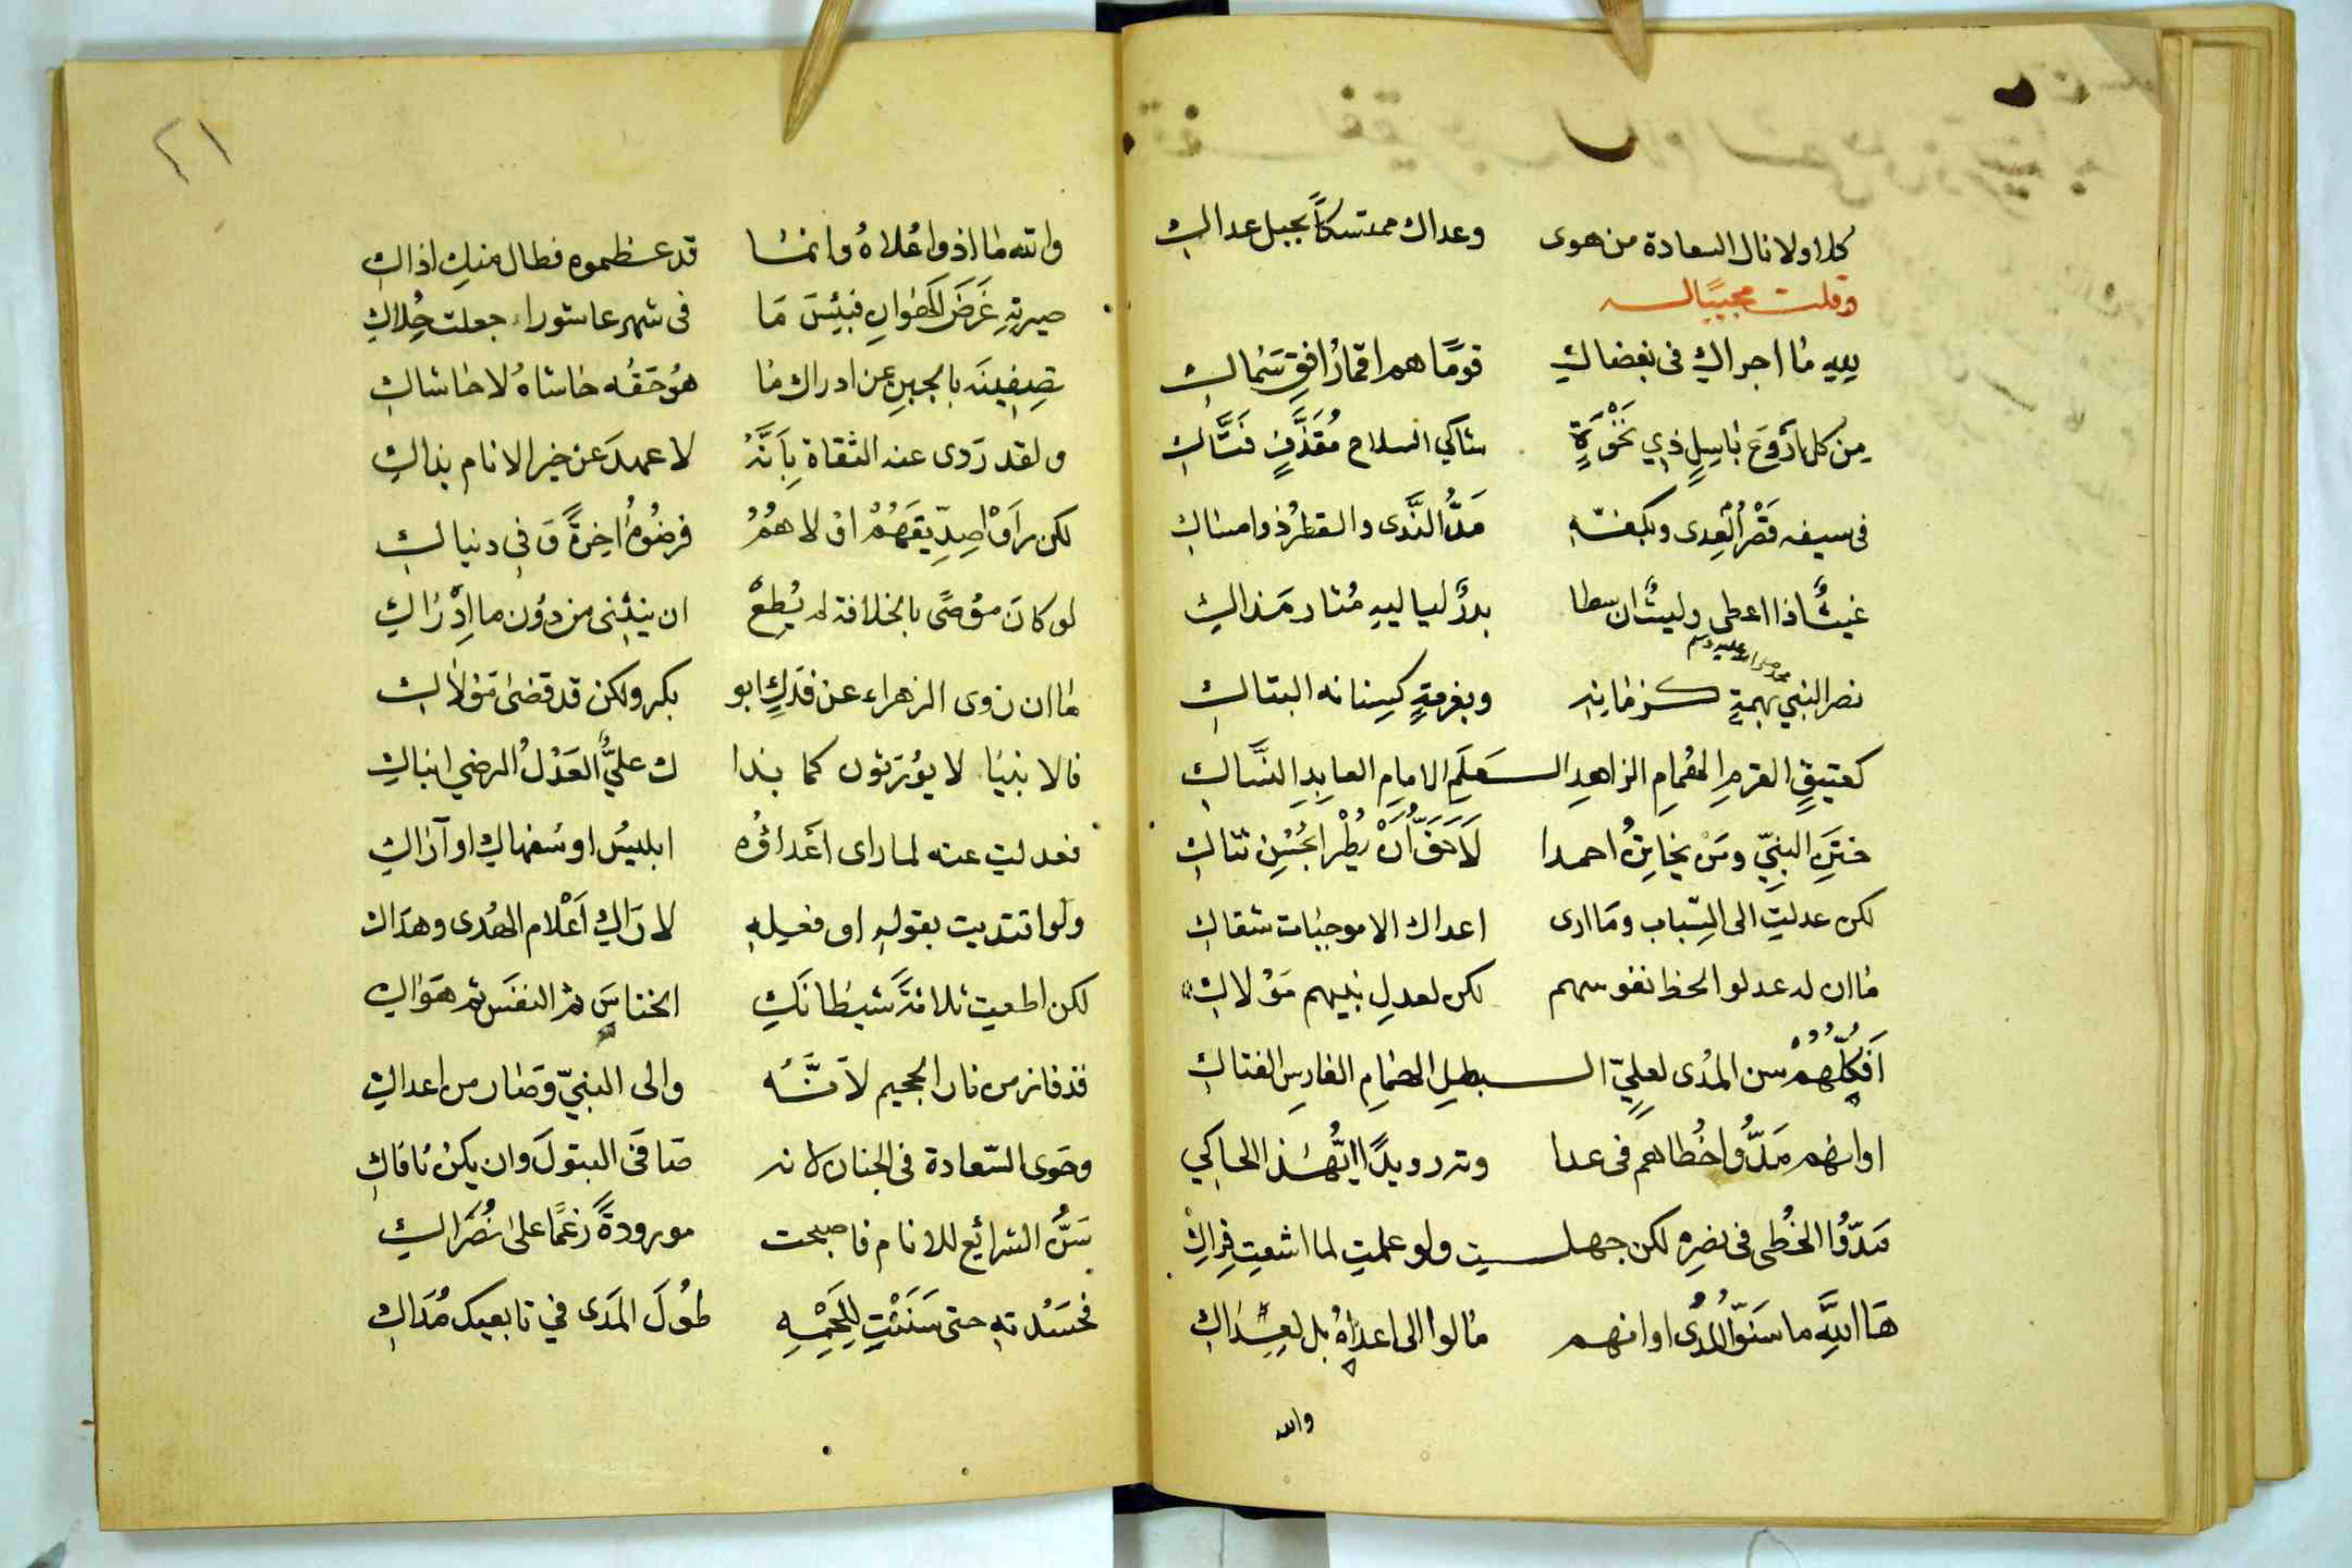 كلا ولا نال السعادة من هوى وعداك ممتسكاً بحبل عداكِ
وقلت مجيبًا له
ييهِ ما اجراكِ في بغضاكِ قومًا هم اقمارُ افقِ سَماكِ
مِن كل اروَعَ باسِلٍ ذي نَخْوَةٍ شاكي السلاح مُقَذَّفٍ فتَّاكِ
في سيفه قَصْرُ العِدى وبكفّهِ مَدُّ النَّدى والقطرُ ذو امساكِ
غيثٌ اذا اعطى وليثٌ ان سطا بدرٌ لياليهِ مُثار
نصر النبي بهمةٍ وبغرمةٍ كسِنانه البتاكِ
كعتيقِ القرمِ الهُمامِ الزاهدِ العَلَمِ الامامِ العابِدِ النسَّاكِ
ختنِ النبيِّ ومَنْ يخاتِنُ احمدا لَأَحَقُّ أَنْ يُطْرا بحُسْنِ ثناكِ
لكن عدلتِ الى السِّباب وما ارى اعداك الا موجبات شقاكِ
ما ان له عدلوا لحظ نفوسهم لكن لعدلِ بنيهم مَوْلاكِ
أَفَكلُّهُمْ سن المُدى لعليّ البطلِ الهمامِ الفارسِ الفتاكِ
اوانهم مَدُّوا خُطاهم في عدا وتر رويدًا ايُّهٰذا الحاكي
مَدُّوا الخُطى في نصرِهِ لكن جهلتِ ولو علمتِ لما اشعتِ فِراكِ
هَا اللَّهِ ما سَنّوا المُدى اوانهم مالوا الى اعداهُ بل لعِداكِ
والله
٢١
والله ما اذوا عُلاهُ وانما قد عظموه فطال منكِ اذاكِ
صيرتِهِ غَرَضَ الهَوانِ فبِئسَ مَا في شهر عاشوراء جعلت حُلاكِ
تصِفِينَه بالجبنِ عن ادراك ما هُو حَقُه حاشاهُ لا حاشاكِ
ولقد رَوى عنه الثقاة بِأَنَّهُ لا عهدَ عن خير الانام بذاكِ
لكن رأوا صِدِّيقَهُمْ اوْلاهُمُ فرضُوهُ اخِرةً وفي دنياكِ
لو كانَ مُوصًى بالخلافة لم يُطِعْ ان ينثني من دون ما إدْرَاكِ
ما ان زوى الزهراء عن فدَكٍ ابو بكر ولكن قد قضى مَوْلاكِ
فالانبيَا لا يُوْرَثون كما بذا ك عليٌّ العَدْلُ الرضي انباكِ
فعدلتِ عنه لما راى أعداؤُه ابليسُ او سُفهاكِ او آراكِ
ولو اقتديت بقولهِ او فعلِهِ لاراكِ أعْلام الهُدى وهداكِ
لكن اطعيت ثلاثةً شيطانَكِ الخناسَ ثم النفسَ ثم هَوَاكِ
قد فاز من نار الجحيم لأَنَّهُ والى النبيّ وصار من اعداكِ
وحَوى السّعادة في الجنان لانه صَافَى البتولَ وان يكُنْ نافاكِ
سَنَّ الشرائع للانام فاصبحت مورودةً رَغمًا على نُصَرَاكِ
فحسَدْتهِ حتى سَنَنْتِ لِلَحْمِهِ طُولَ المَدى في تابعيك مُدَاكِ